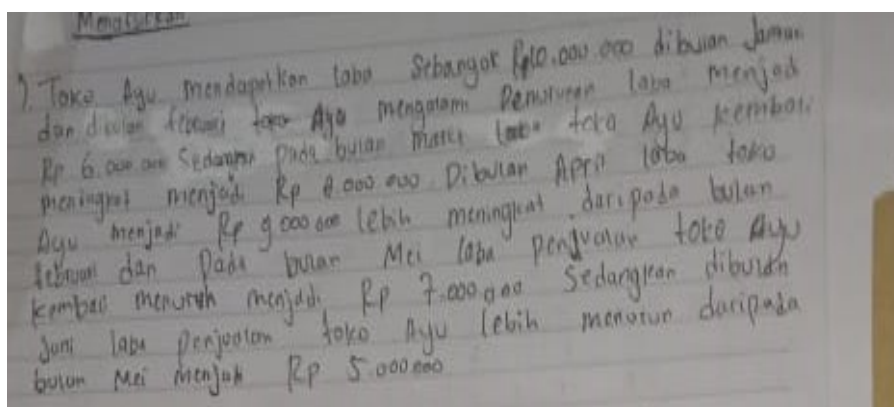 Menafsirkan
1. Toko Ayu mendapatkan laba Sebanyak Rp10.000.000 dibulan Januari
dan dibulan februari toko Ayu mengalami Penurunan laba menjadi
Rp 6.000.000 Sedangkan Pada bulan maret laba toko Ayu kembali
meningkat menjadi Rp 8.000.000. Dibulan April laba toko
Ayu menjadi Rp 9.000.000 lebih meningkat daripada bulan
februari dan Pada bulan Mei laba penjualan toko Ayu
kembali menurun menjadi Rp 7.000.000 Sedangkan dibulan
Juni laba penjualan toko Ayu lebih menurun daripada
bulan Mei menjadi Rp 5.000.000